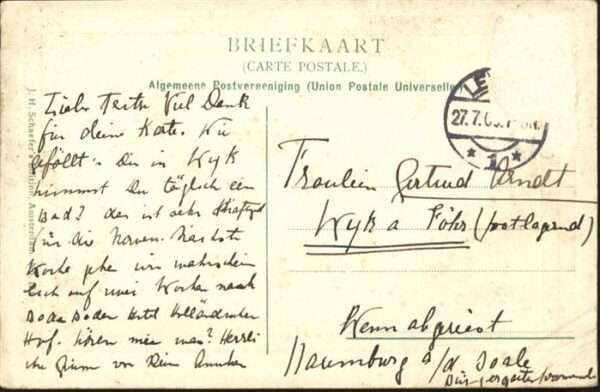 BRIEFKAART
(CARTE POSTALE.)
Algemeene Postvereeniging (Union Postale Universelle)
27.7.0
J. H. Schaefer Amsterdam
Viel Dank
für deine Karte. Wie
gefällt's Dir in Wyk
nimmst Du täglich ein
Bad? das ist sehr
für die Nerven. Nächste
Woche gehen wir wahrschein
lich auf zwei Wochen nach
Baden Baden Hotel Holländischer
Hof. Hören wir was? Herzli
che Grüsse von Dein
Fräulein Gertrud Arndt
Wyk a Föhr (postlagernd)
Wenn abgereist
Naumburg a/d Saale
Bürgergarten